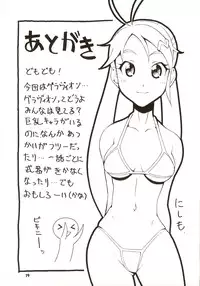 あとがき
どもども!
今回はグラヴィオン…
グラヴィオンってどうよ
みんなは見てる?
巨乳キャラがいる
のになんかあつ
かいがフリーだっ
たり…一話ごとに
武器がきかなく
なったり…でも
おもしろーい(かな)
にしも。